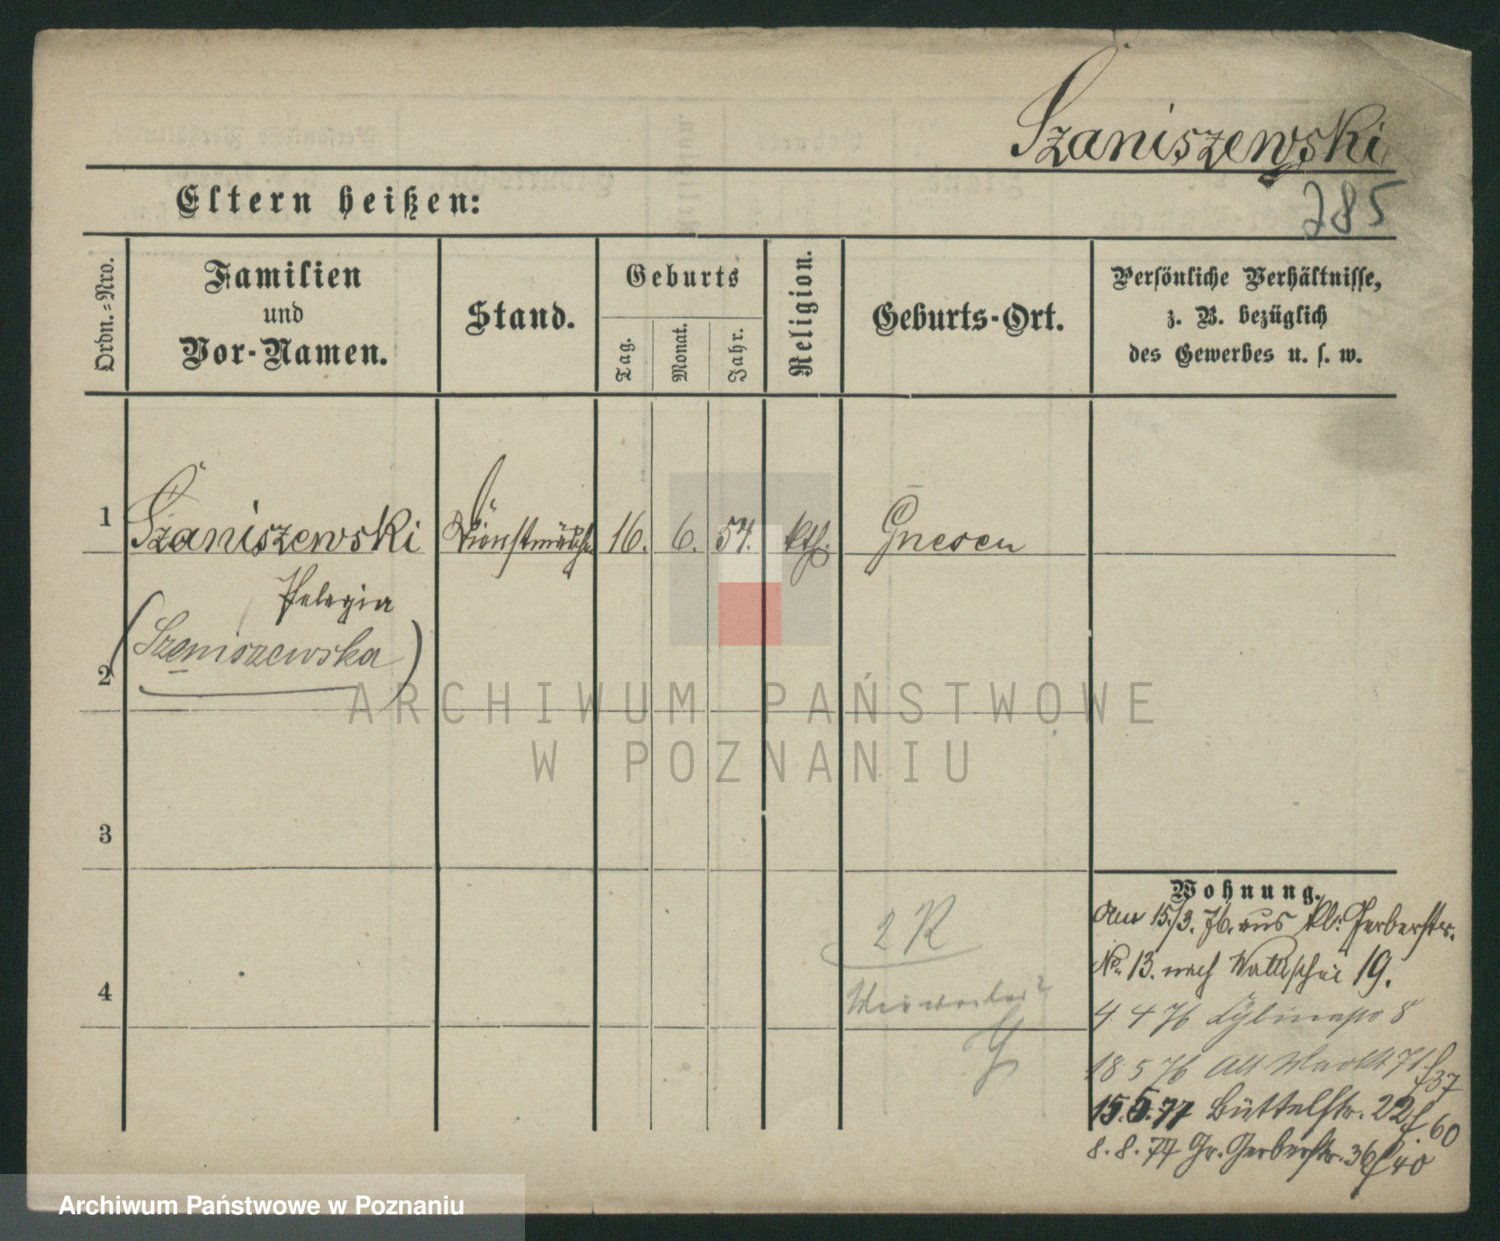 Szaniszewski
285
Eltern heißen:
Ordn.-Nro.
Familien
und
Vor-Namen.
Stand.
Geburts
Tag.
Monat.
Jahr.
Religion.
Geburts-Ort.
Persönliche Verhältnisse,
z. B. bezüglich
des Gewerbes u. s. w.
1
Szaniszewski Dienstmädch. 16. 6. 54. kth. Gnesen
Pelagia
(Szeniszewska)
2
ARCHIWUM PAŃSTWOWE
W POZNANIU
3
Wohnung.
2 R
Am 15/3. 76. aus kl. Gerberstr.
No. 13. nach Wallischei 19.
4
4 4 76 8
18 5 76 Alt Markt 71 f 37
15.5.77 Büttelstr. 22 f. 60
8. 8. 77 Gr. Gerberstr. 36 f 40
Archiwum Państwowe w Poznaniu